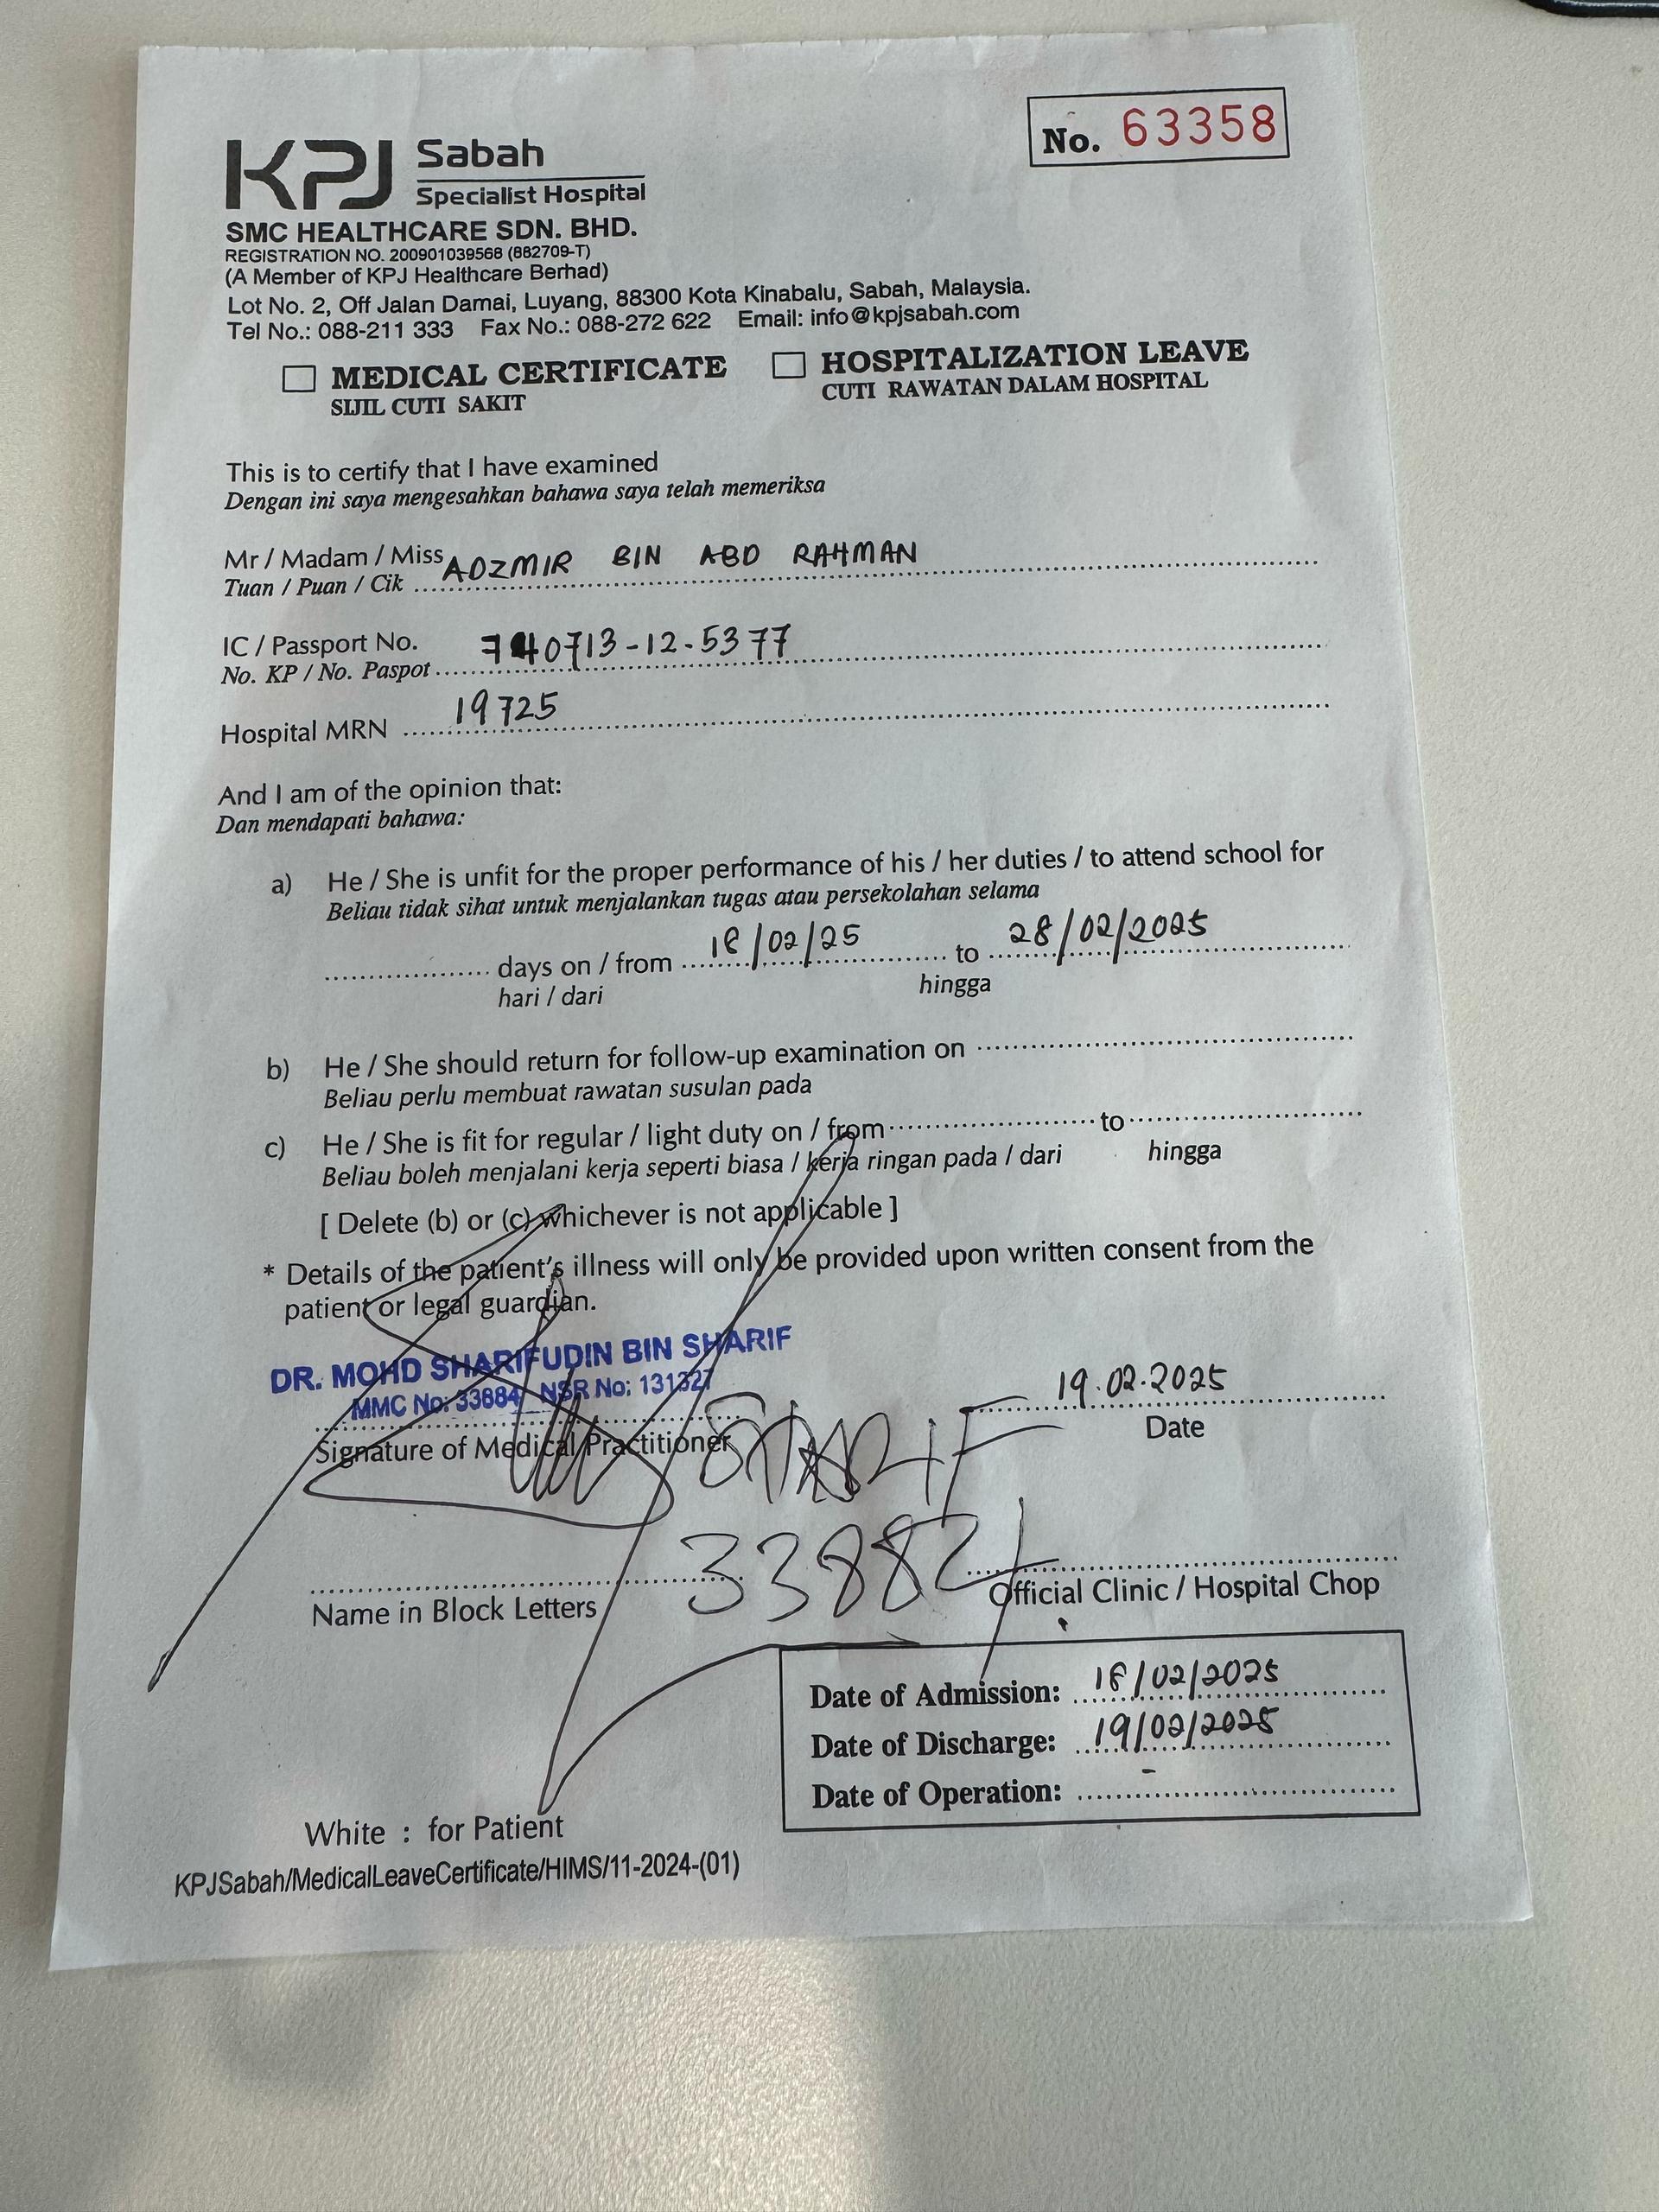 No. 63358
KPJ Sabah
Specialist Hospital
SMC HEALTHCARE SDN. BHD.
REGISTRATION NO. 200901039568 (882709-T)
(A Member of KPJ Healthcare Berhad)
Lot No. 2, Off Jalan Damai, Luyang, 88300 Kota Kinabalu, Sabah, Malaysia.
Tel No.: 088-211 333 Fax No.: 088-272 622 Email: info@kpjsabah.com
MEDICAL CERTIFICATE HOSPITALIZATION LEAVE
SIJIL CUTI SAKIT CUTI RAWATAN DALAM HOSPITAL
This is to certify that I have examined
Dengan ini saya mengesahkan bahawa saya telah memeriksa
Mr / Madam / Miss ADZMIR BIN ABD RAHMAN
Tuan / Puan / Cik
IC / Passport No. 740713-12-5377
No. KP / No. Paspot
Hospital MRN 19725
And I am of the opinion that:
Dan mendapati bahawa:
a) He / She is unfit for the proper performance of his / her duties / to attend school for
Beliau tidak sihat untuk menjalankan tugas atau persekolahan selama
days on / from 18/02/25 to 28/02/2025
hari / dari hingga
b) He / She should return for follow-up examination on
Beliau perlu membuat rawatan susulan pada
c) He / She is fit for regular / light duty on / from to
Beliau boleh menjalani kerja seperti biasa / kerja ringan pada / dari hingga
[ Delete (b) or (c) whichever is not applicable ]
* Details of the patient's illness will only be provided upon written consent from the
patient or legal guardian.
DR. MOHD SHARIFUDIN BIN SHARIF
MMC No: 33884 NSR No: 131327
19.02.2025
Signature of Medical Practitioner Date
SHARIF
33884
Name in Block Letters Official Clinic / Hospital Chop
Date of Admission: 18/02/2025
Date of Discharge: 19/02/2025
Date of Operation: -
White : for Patient
KPJSabah/MedicalLeaveCertificate/HIMS/11-2024-(01)